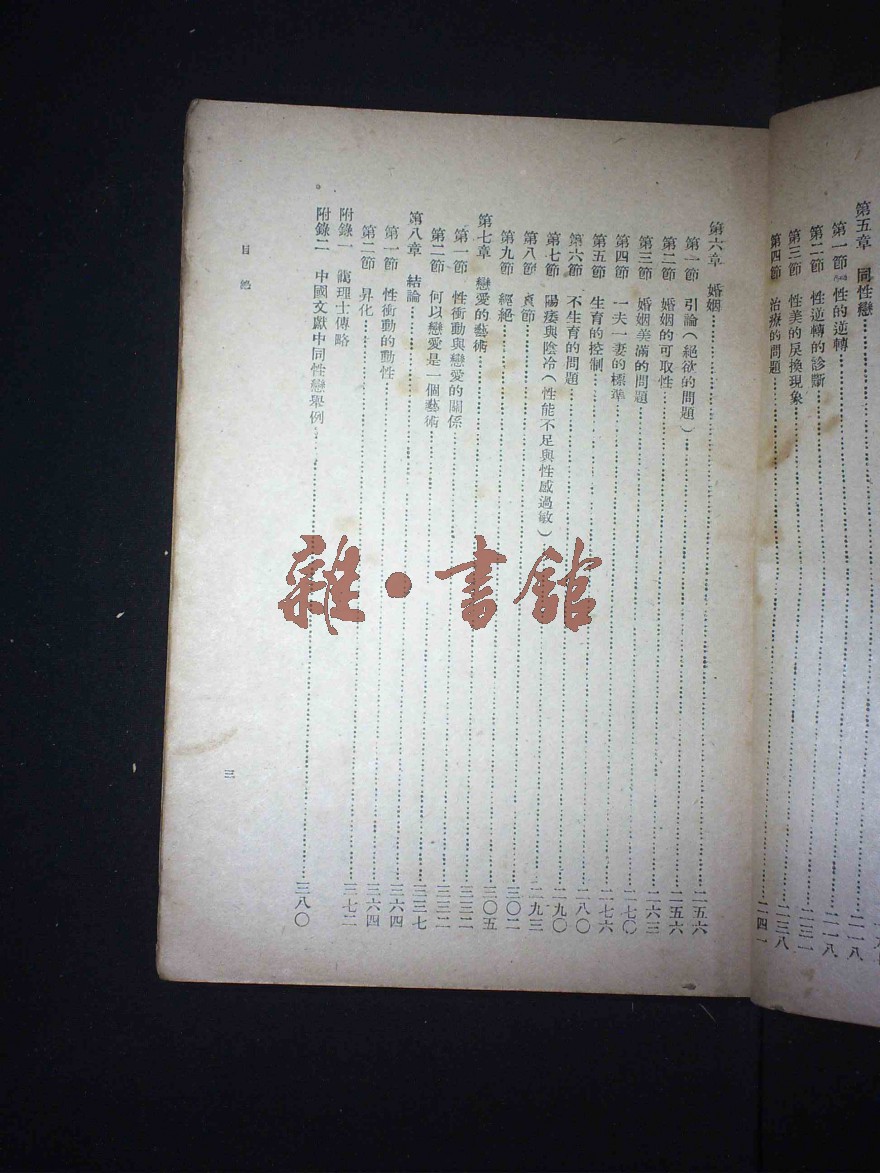 第五章 同性戀 二一八
第一節 性的逆轉 二一八
第二節 性逆轉的診斷
第三節 性美的戾換現象 二三八
第四節 治療的問題 二四一
第六章 婚姻 二五六
第一節 引論（絕欲的問題） 二五六
第二節 婚姻的可取性 二六三
第三節 婚姻美滿的問題 二七〇
第四節 一夫一妻的標準 二七六
第五節 生育的控制 二八〇
第六節 不生育的問題 二九〇
第七節 陽痿與陰冷（性能不足與性感過敏） 二九三
第八節 貞節 三〇二
第九節 經絕 三〇五
第七章 戀愛的藝術 三二二
第一節 性衝動與戀愛的關係 三二二
第二節 何以戀愛是一個藝術 三三七
第八章 結論 三六四
第一節 性衝動的動性 三六四
第二節 昇化 三七二
附錄一 靄理士傳略
附錄二 中國文獻中同性戀舉例 三八〇
目
三
雜·書館